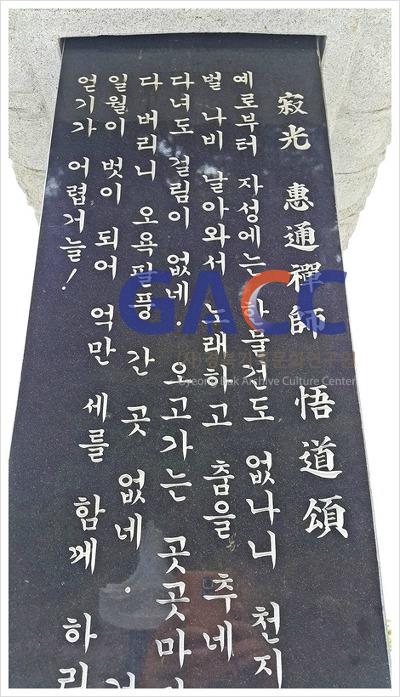 寂光 惠通禪師 悟道頌
예로부터 자성에는 한물건도 없나니 천지
벌 나비 날아와서 노래하고 춤을 추네
다녀도 걸림이 없네. 오고가는 곳곳마
다 버리니 오욕팔풍 간 곳 없네.
일월이 벗이 되어 억만 세를 함께 하리
얻기가 어렵거늘!
GACC
(사)경북기록문화연구원
Gyeongbuk Archive Culture Center